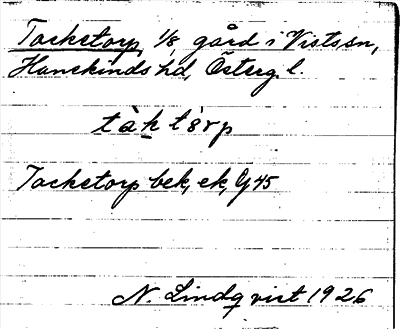 Tacketorp, 1/8, gård i Vists sn,
Hanekinds hd, Österg. l.
tàk tòrp
Tacketorp bek, ek, Gj 45
N. Lindqvist 1926